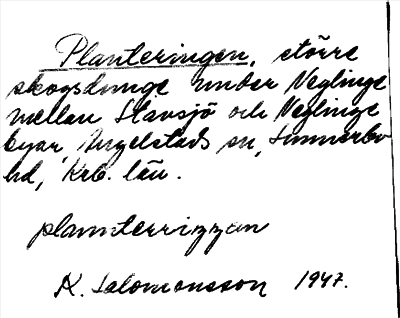 Planteringen, större
skogsdunge under Neglinge
mellan Slavsjö och Neglinge
byar, Angelstads sn, Sunnerbo
hd, Krb. län.
plannterrizzan
K. Salomonsson 1947.